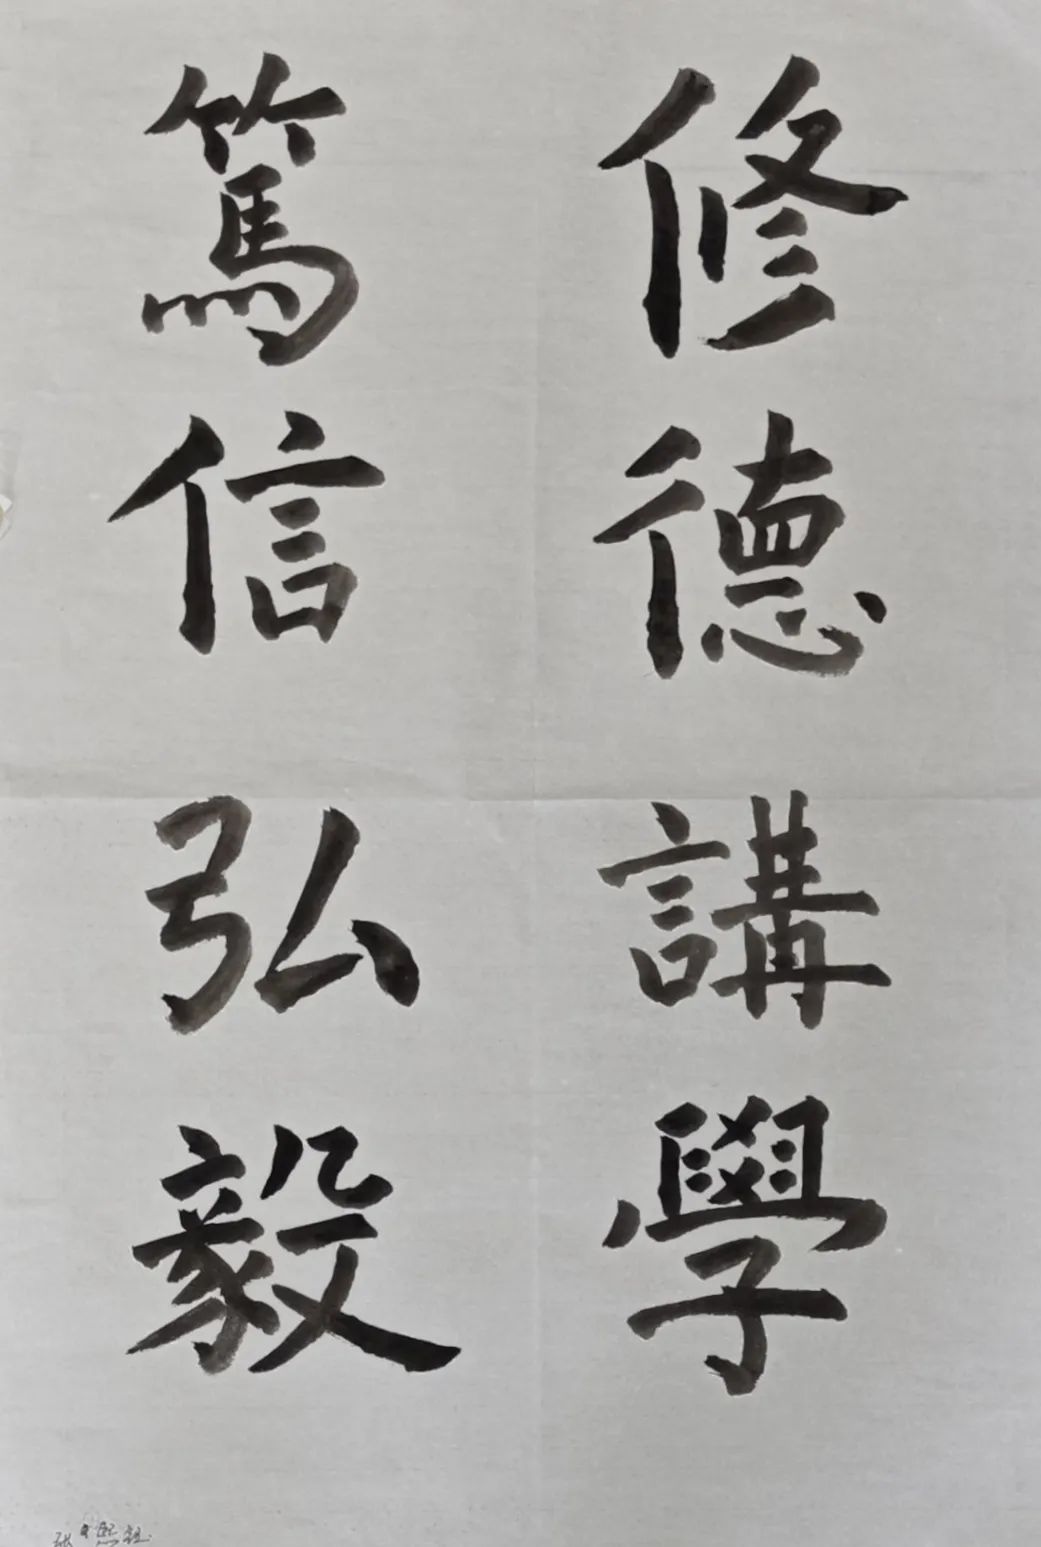 修德講學
篤信弘毅